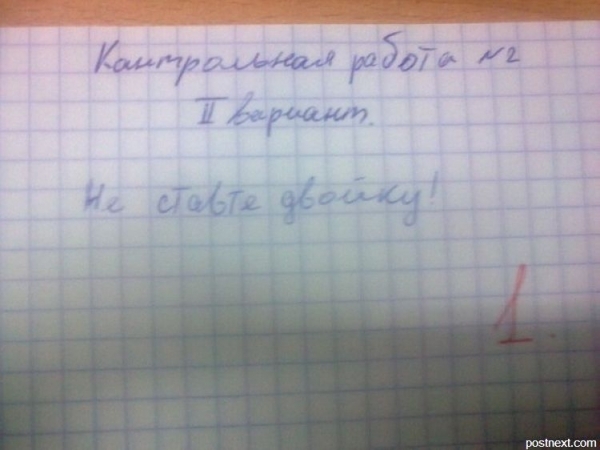 Кантрольная работа №2
II вариант.
Не ставте двойку!
1
postnext.com